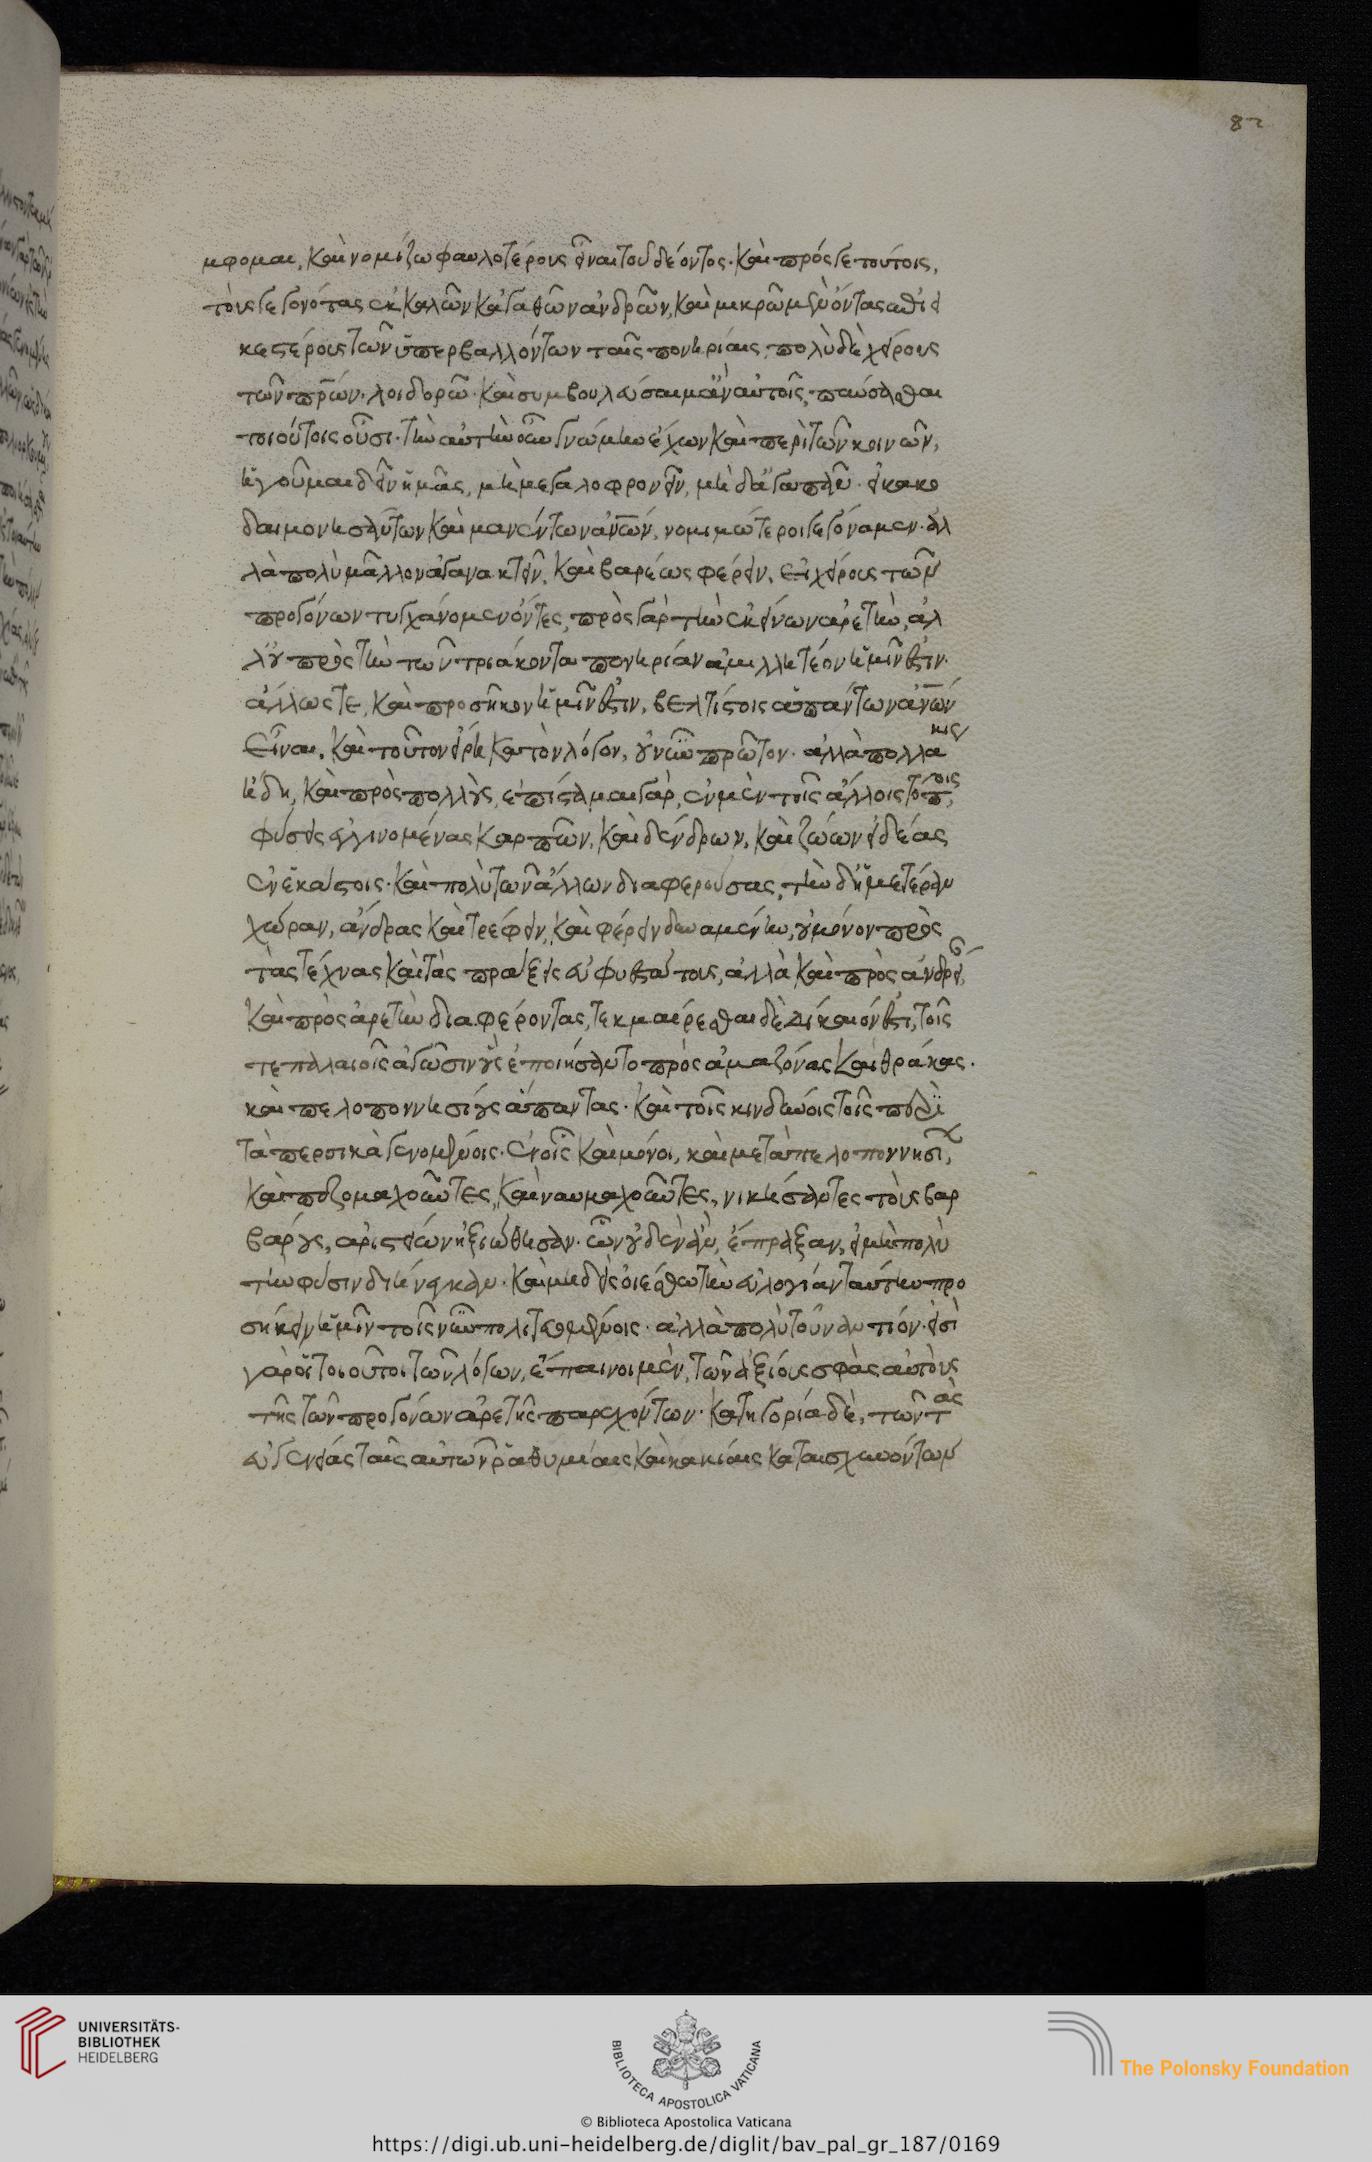 μφομαι, καὶ νομίζω φαυλοτέρους εἶναι τοῦ δέοντος. καὶ πρός γε τούτοις,
τοὺς γεγονότας ἐκ καλῶν κἀγαθῶν ἀνδρῶν, καὶ μικρῶ μὲν ὄντας ἐπιει
κεστέρους τῶν ὑπερβαλλόντων ταῖς πονηρίαις, πολὺ δὲ χείρους
τῶν πρῶν. λοιδορῶ. καὶ συμβουλεύσαιμ' ἂν αὐτοῖς, παύσασθαι
τοιούτοις οὖσι. τὴν αὐτὴν οὖν γνώμην ἔχων καὶ περὶ τῶν κοινῶν,
ἡγοῦμαι δεῖν ἡμᾶς, μὴ μεγαλοφρονεῖν, μὴ δ' ἀγαπᾶν. εἰ κακο
δαιμονησάντων καὶ μανέντων ἀνων, νομιμώτεροι γεγόναμεν. ἀλ
λὰ πολὺ μᾶλλον ἀγανακτεῖν, καὶ βαρέως φέρειν, εἰ χείρους τῶν
προγόνων τυγχάνομεν ὄντες, πρὸς γὰρ τὴν ἐκείνων ἀρετὴν, ἀλ
λ' οὐ πρὸς τὴν τῶν τριάκοντα πονηρίαν ἁμιλλητέον ἡμῖν ἐστιν.
ἄλλως τε, καὶ προσῆκον ἡμῖν ἐστιν, βελτίστοις ἁπάντων ἀνων
εἶναι, καὶ τοῦτον εἴρηκα τὸν λόγον, οὐ νῦν πρῶτον. ἀλλὰ πολλάκις
ἤδη, καὶ πρὸς πολλοὺς, ἐπίσταμαι γὰρ, ἐν μὲν τοῖς ἄλλοις τόποις,
φύσεις ἐγγινομένας καρπῶν, καὶ δένδρων, καὶ ζώων ἰδέας
ἐν ἑκάστοις. καὶ πολὺ τῶν ἄλλων διαφερούσας, τὴν δ' ἡμετέραν
χώραν, ἄνδρας καὶ τρέφειν, καὶ φέρειν δυναμένην, οὐ μόνον πρὸς
τὰς τέχνας καὶ τὰς πράξεις εὐφυεστάτους, ἀλλὰ καὶ πρὸς ἀνδρεί,
καὶ πρὸς ἀρετὴν διαφέροντας, τεκμαίρεσθαι δὲ δίκαιόν ἐστι, τοῖς
τε παλαιοῖς ἀγῶσιν οὓς ἐποιήσαντο πρὸς ἀμαζόνας καὶ θράκας.
καὶ πελοποννησίους ἅπαντας. καὶ τοῖς κινδύνοις τοῖς περὶ
τὰ περσικὰ γενομένοις. ἐν οἷς καὶ μόνοι, καὶ μετὰ πελοποννησίων,
καὶ πεζομαχοῦντες, καὶ ναυμαχοῦντες, νικήσαντες τοὺς βαρ
βάρους, ἀριστείων ἠξιώθησαν. ὧν οὐδὲν ἂν, ἔπραξαν, εἰ μὴ πολὺ
τὴν φύσιν διήνεγκαν. καὶ μηδεὶς οἰέσθω τὴν εὐλογίαν ταύτην προ
σήκειν ἡμῖν τοῖς νῦν πολιτευομένοις. ἀλλὰ πολὺ τοὐναντίον. εἰσὶ
γὰρ οἱ τοιοῦτοι τῶν λόγων, ἔπαινοι μὲν, τῶν ἀξίους σφᾶς αὐτοὺς
τῆς τῶν προγόνων ἀρετῆς παρεχόντων. κατηγορία δὲ, τῶν τὰς
εὐγενείας ταῖς αὐτῶν ῥαθυμίαις καὶ κακίαις καταισχυνόντων
82
UNIVERSITÄTS-
BIBLIOTHEK
HEIDELBERG
BIBLIOTECA APOSTOLICA VATICANA
The Polonsky Foundation
© Biblioteca Apostolica Vaticana
https://digi.ub.uni-heidelberg.de/diglit/bav_pal_gr_187/0169